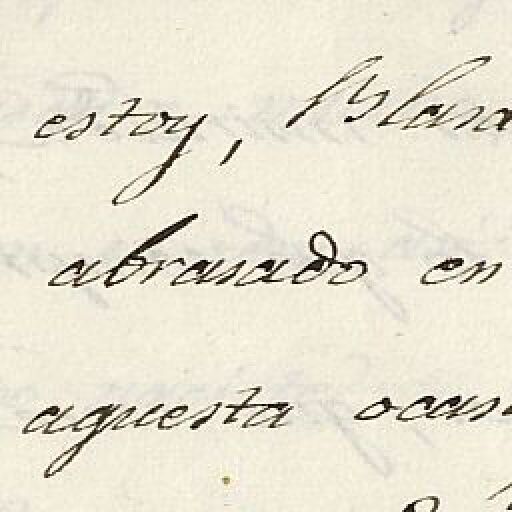 estoy, Blasa
abrasado en
aquesta ocas